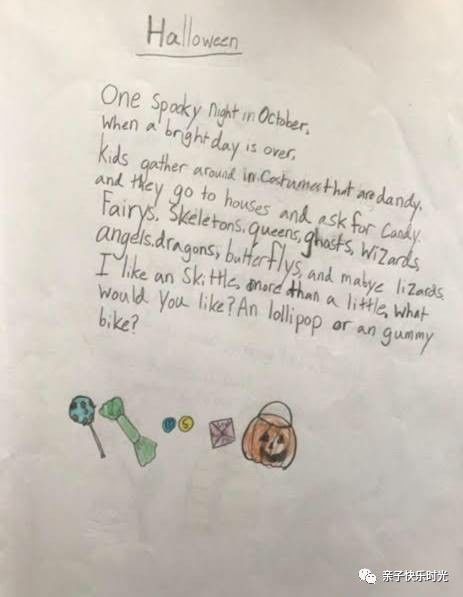 Halloween
One Spooky night in October,
when a bright day is over,
Kids gather around in Costumes that are dandy,
and they go to houses and ask for Candy.
Fairys, Skeletons, queens, ghosts, Wizards,
angels, dragons, butterflys, and mabye lizards.
I like an Skittle, more than a little, what
would You like? An lollipop or an gummy
bike?
S
亲子快乐时光